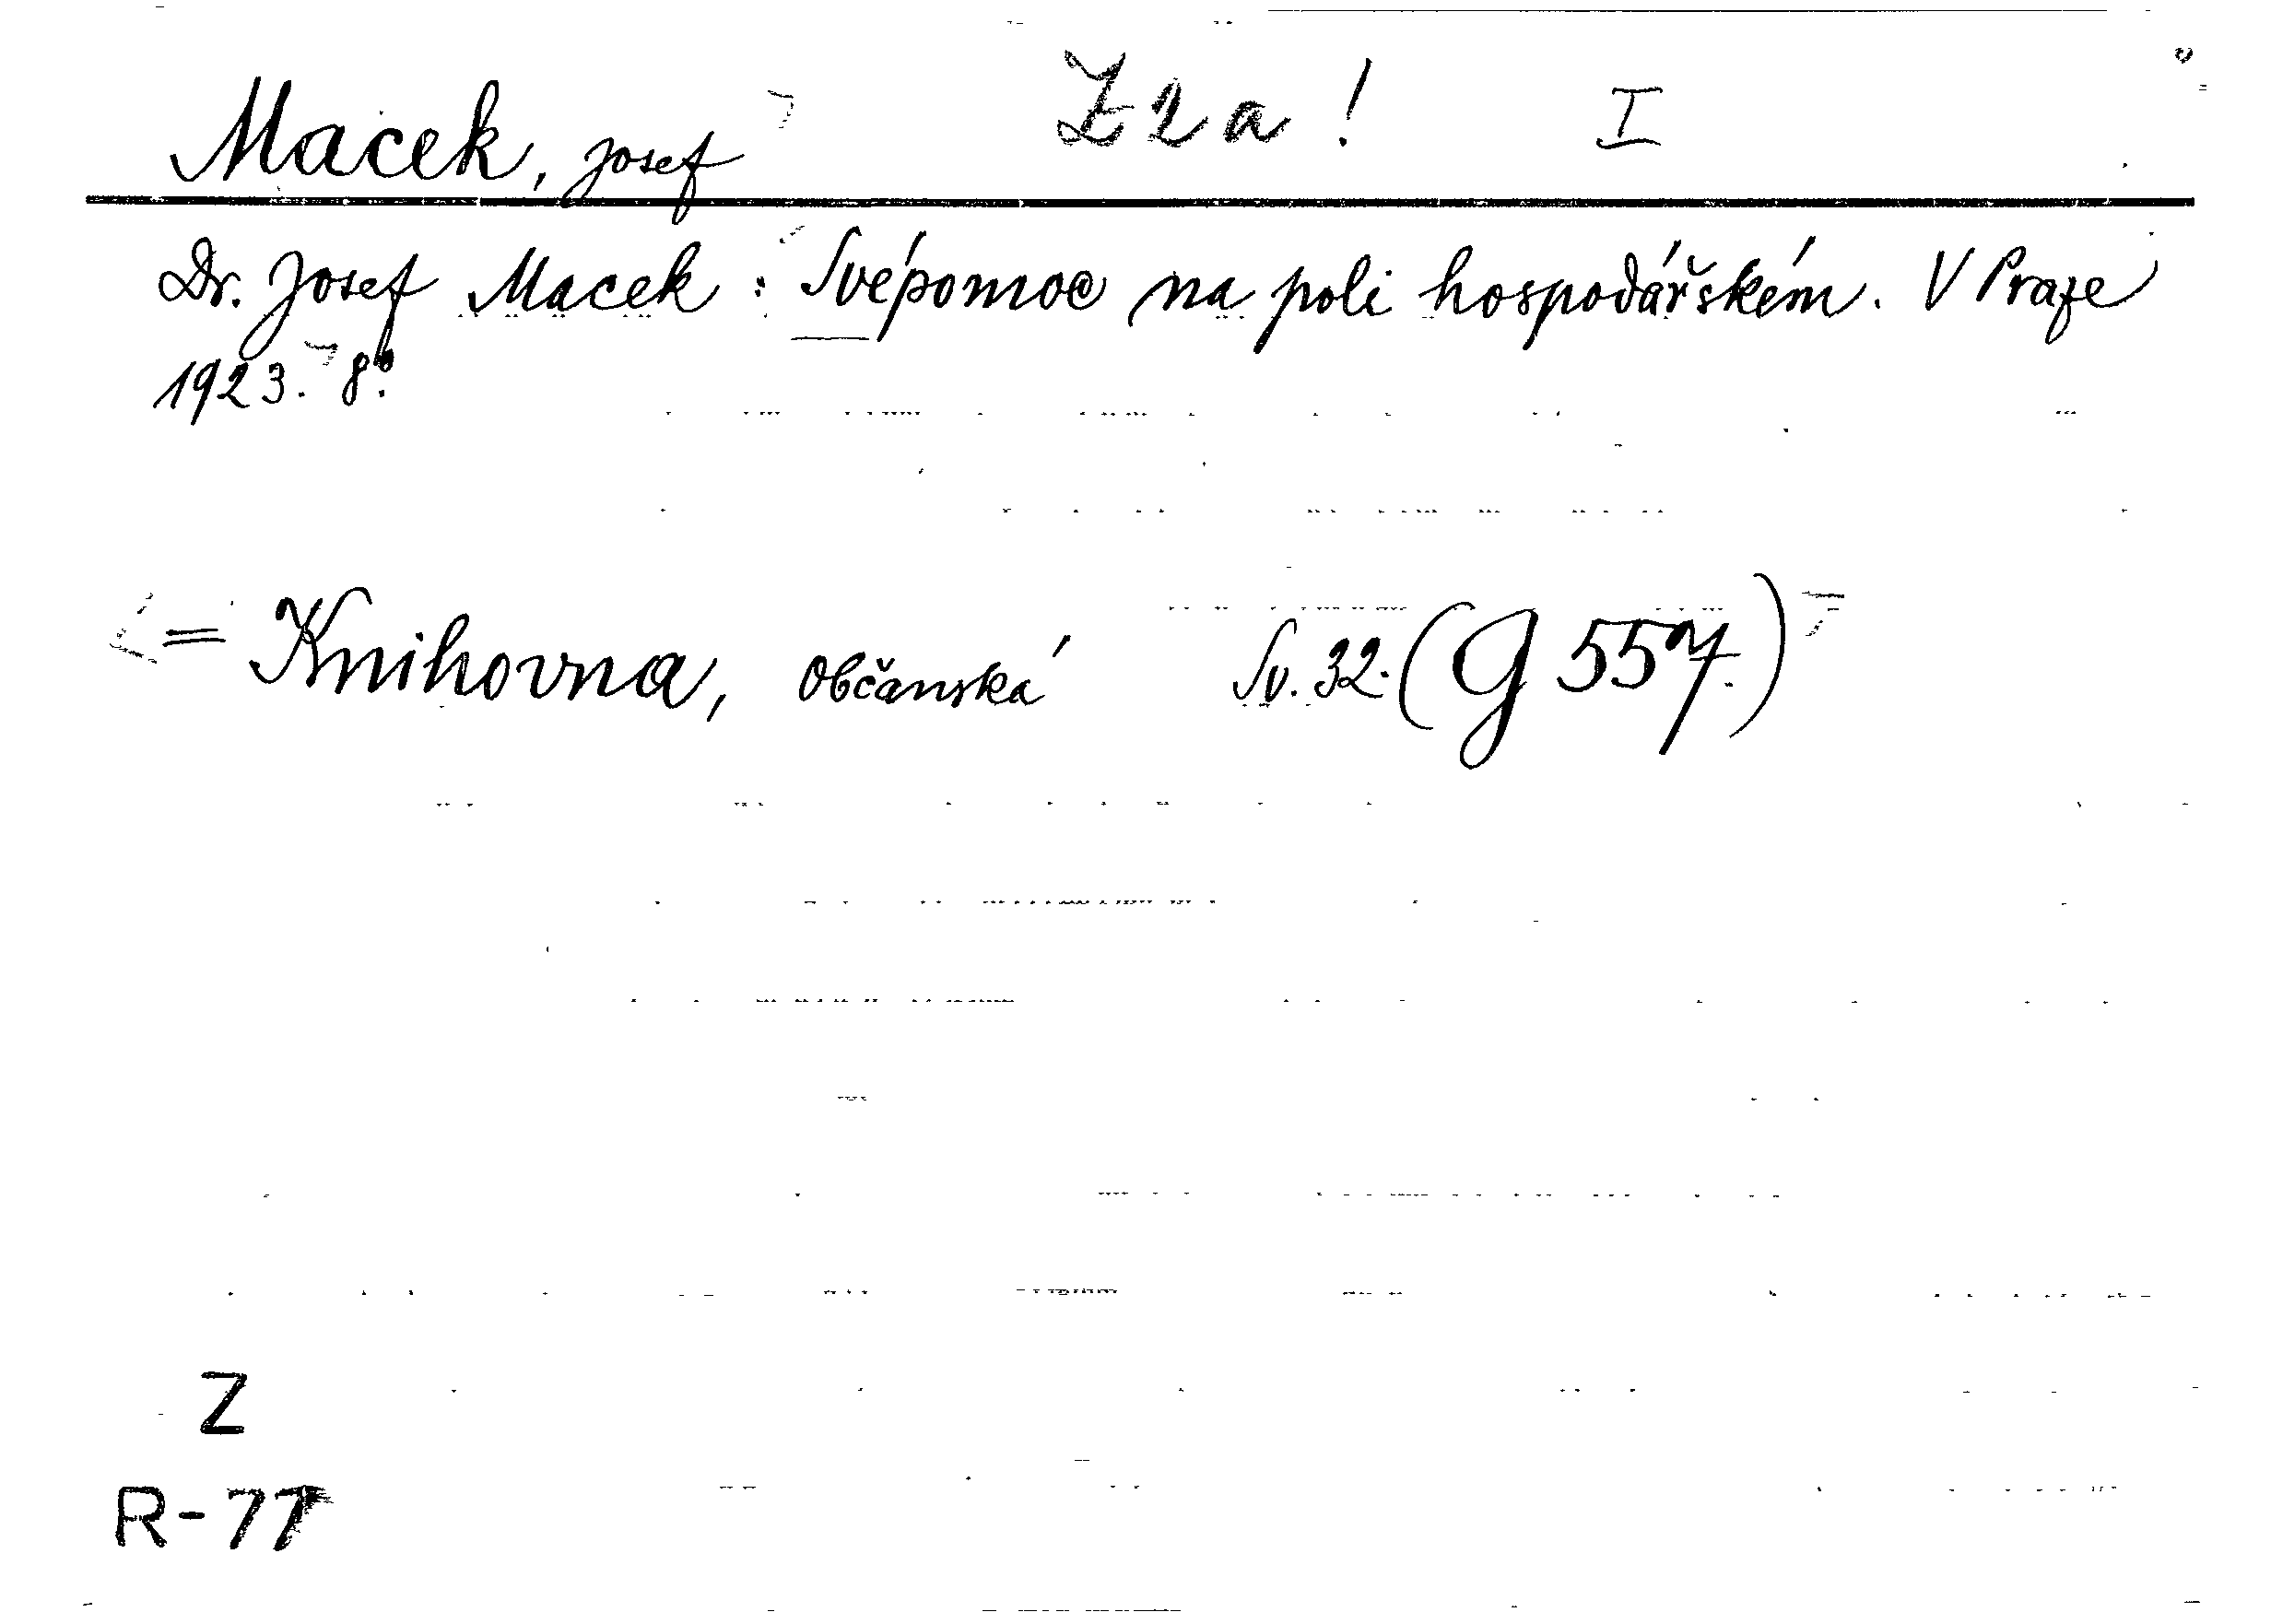 Macek, Josef Z 2 a ! I
Dr. Josef Macek : Svépomoc na poli hospodářském. V Praze
1923. 8°.
= Knihovna, občanská Sv. 32. (G 557.)
Z
R-77